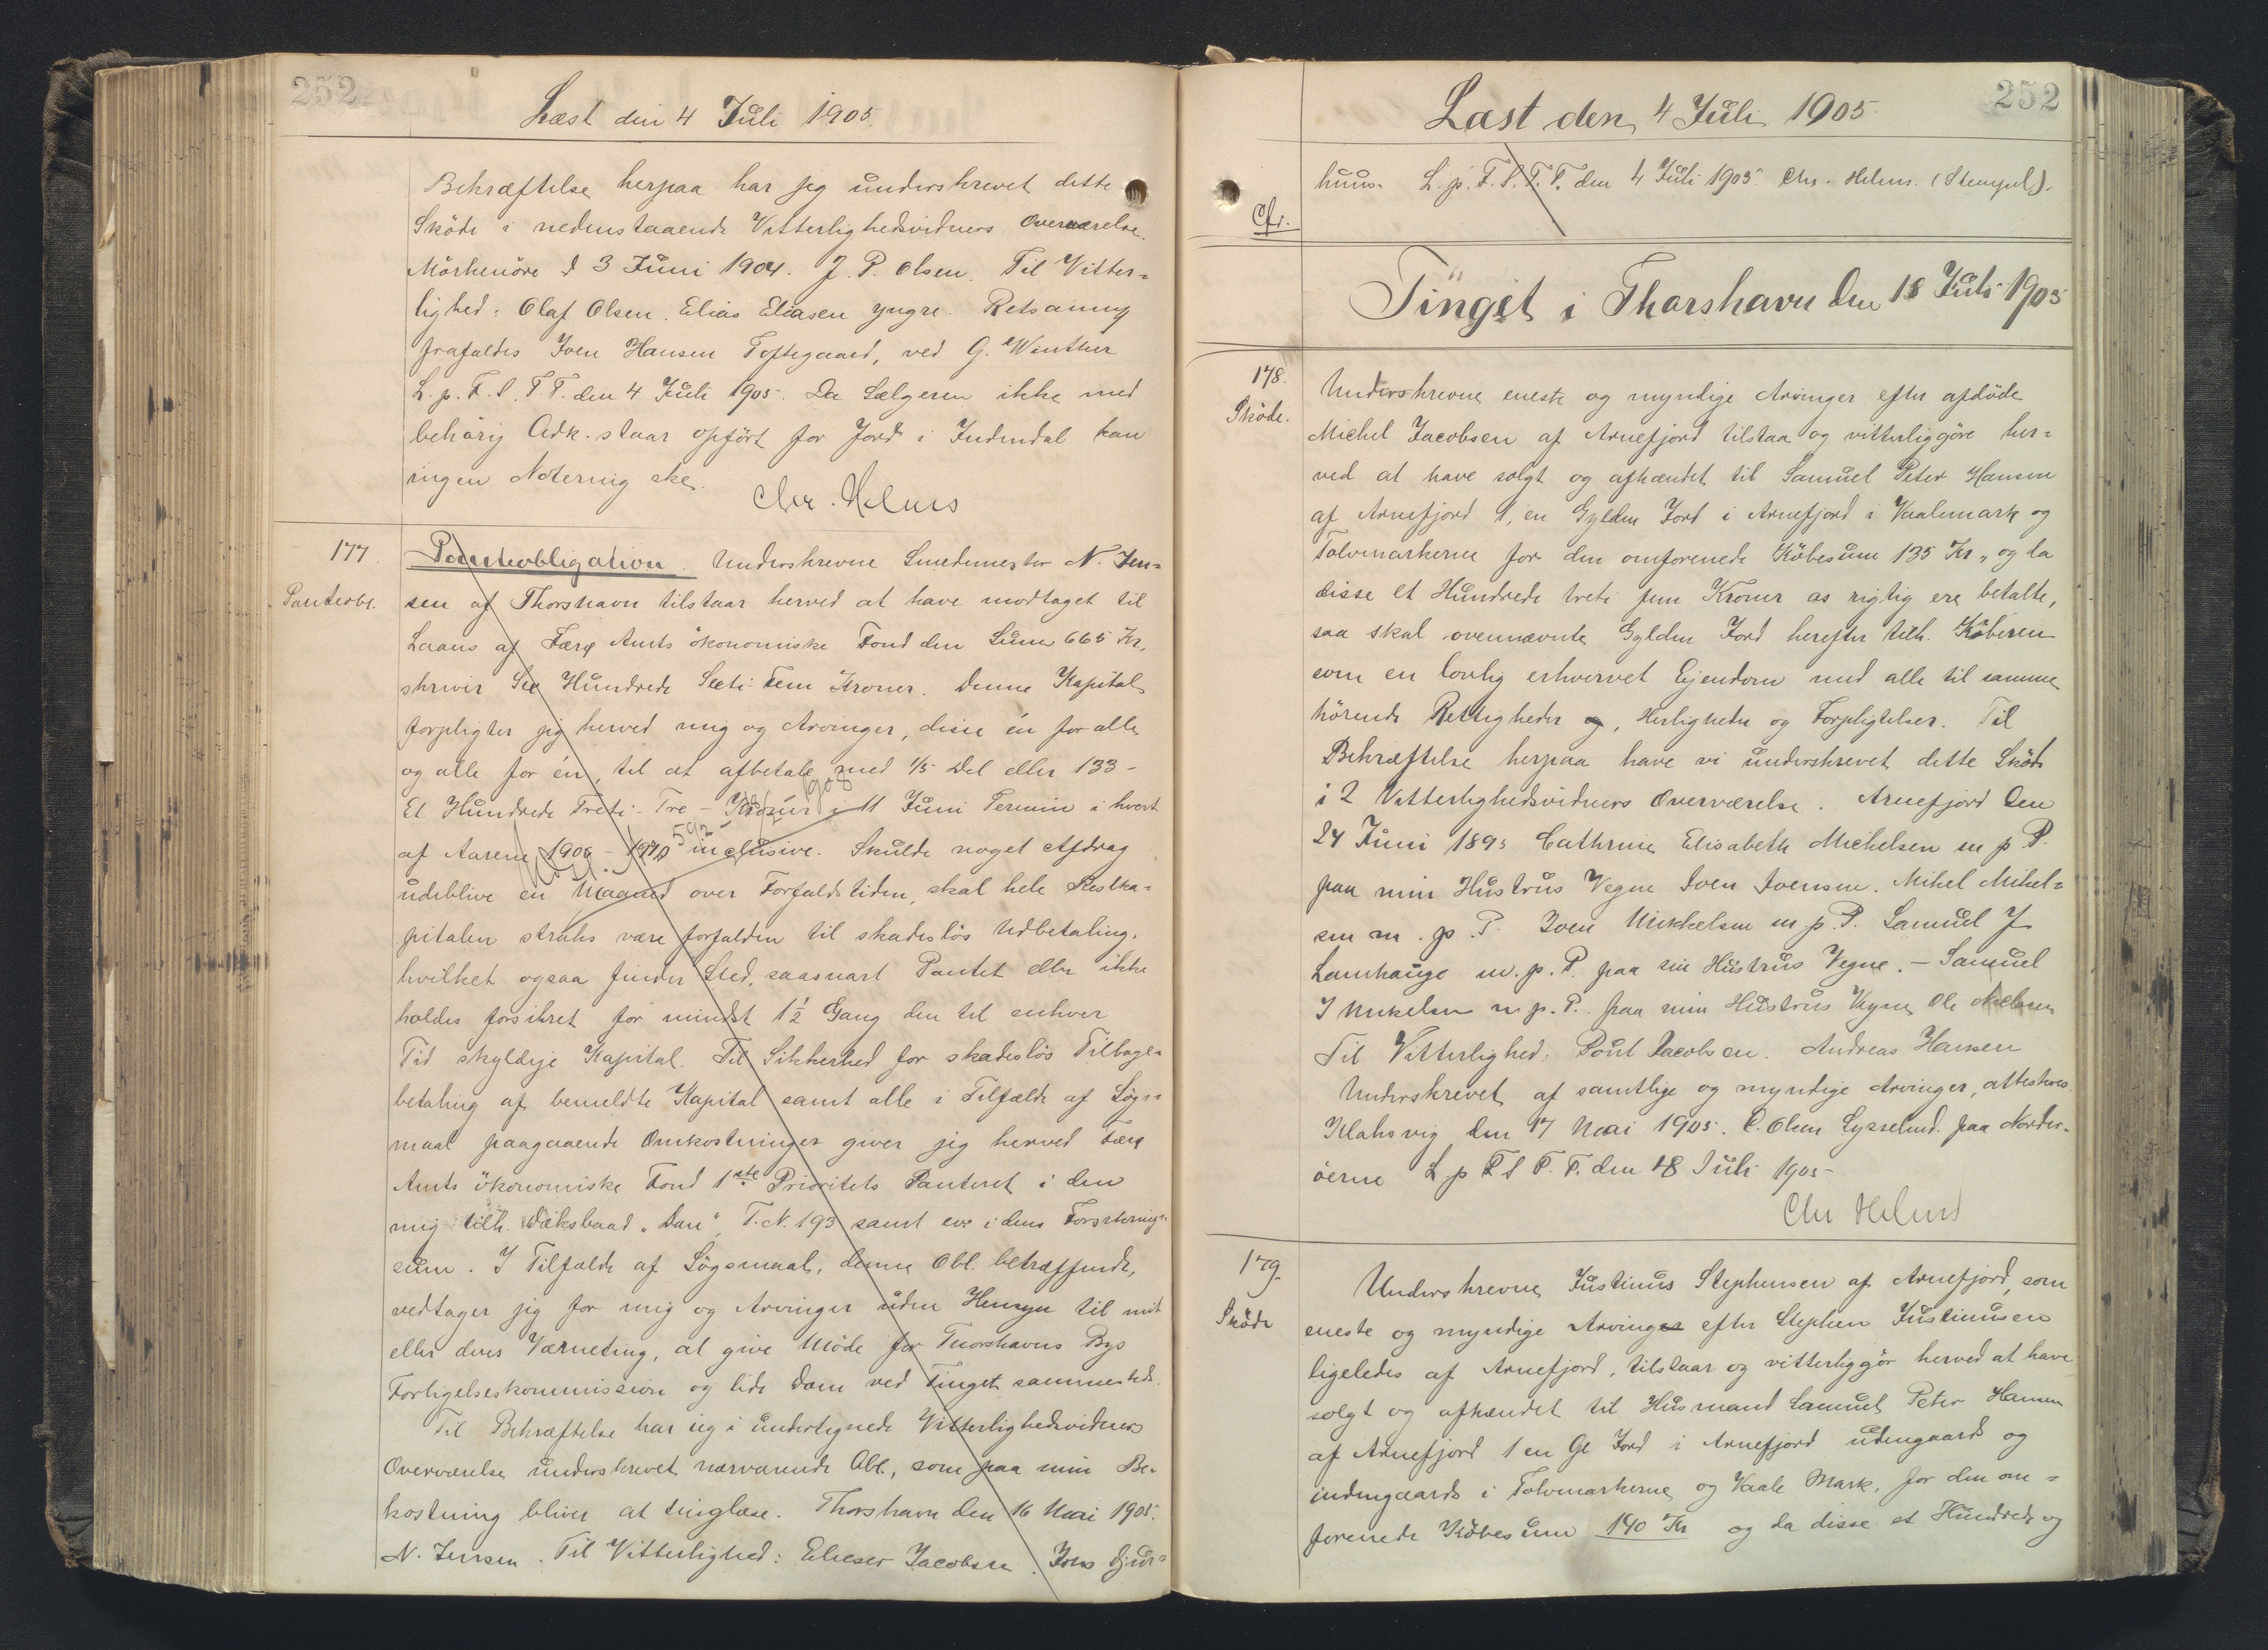 252
Læst den 4 Juli 1905.
Bekræftelse herpaa har jeg underskrevet dette
Sköde i nedenstaaende Vitterlighedsvidners Overværelse.
Mörkenöre d 3 Juni 1904. J. P. Olsen. Til Vitter=
lighed: Olaf Olsen. Elias Eliasen yngre. Retsanmg
frafaldes Joen Hansen Toftegaard, ved G. Winther
L. p. F. S. T. T. den 4 Juli 1905. Da Sælgeren ikke med
behörig Adk. staar opfört for Jord i Indendal kan
ingen Notering ske.
Chr. Helms
177
Panteobl.
Panteobligation. Underskrevne Smedemester N. Jen=
sen af Thorshavn tilstaar herved at have modtaget til
Laans af Færø Amts ökonomiske Fond den Sum 665 Kr,
skriver Sex Hundrede Sexti Fem Kroner. Denne Kapital
forpligter jeg herved mig og Arvinger, disse én for alle
og alle for én, til at afbetale med 1/5 Del eller 133 -
Et Hundrede Treti-Tre - Kroner i 11 Juni Termin i hvert
af Aarene 1906 - 1910 inclusive. Skulde noget Afdrag
udeblive en Maaned over Forfaldstiden, skal hele Restka=
pitalen straks være forfalden til skadeslös Udbetaling,
hvilket ogsaa finder Sted, saasnart Pantet eller ikke
holdes forsikret for mindst 1½ Gang den til enhver
Tid skyldige Kapital. Til Sikkerhed for skadeslös Tilbage=
betaling af bemeldte Kapital samt alle i Tilfælde af Sögs=
maal paagaaende Omkostninger giver jeg herved Færø
Amts ökonomiske Fond 1ste Prioritets Panteret i den
mig tilh. Dæksbaad "Dan", T. N. 193 samt ev. i dens Forsikrings
sum. I Tilfælde af Sögsmaal, denne Obl. betræffende,
vedtager jeg for mig og Arvinger uden Hensyn til mit
eller deres Værneting, at give Möde for Thorshavns Bys
Forligelseskommission og lide Dom ved Tinget sammesteds.
Til Bekræftelse har jeg i undertegnede Vitterlighedsvidners
Overværelse underskrevet nærværende Obl., som paa min Be=
kostning bliver at tinglæse. Thorshavn den 16 Mai 1905.
N. Jensen. Til Vitterlighed: Elieser Jacobsen. Joen Djur=
252
Læst den 4 Juli 1905.
huus. L. p. F. S. T. T. den 4 Juli 1905. Chr. Helms. (Stempel).
Cfr.
Tinget i Thorshavn den 18 Juli 1905
178.
Sköde.
Underskrevne eneste og myndige Arvinger efter afdöde
Michel Jacobsen af Arnefjord tilstaa og vitterliggöre her=
ved at have solgt og afhændet til Samuel Peter Hansen
af Arnefjord 1, en Gylden Jord i Arnefjord i Vaalemark og
Tolvmarkerne for den omforenede Köbesum 135 Kr., og da
disse et Hundrede treti fem Kroner os rigtig ere betalte,
saa skal ovennævnte Gylden Jord herefter tilh. Köberen
som en lovlig erhvervet Ejendom med alle til samme
hörende Rettigheder og, Herligheder og Forpligtelser. Til
Bekræftelse herpaa have vi underskrevet dette Sköde
i 2 Vitterlighedsvidners Overværelse. Arnefjord den
24 Juni 1895 Cathrine Elisabeth Michelsen m p P.
paa min Hustrus Vegne Joen Joensen. Mikel Mikel=
sen m. p. P. Joen Mikkelsen m p. P. Samuel J
Lamhauge m. p. P. paa sin Hustrus Vegne. - Samuel
J Mikelsen m p. P. paa min Hustrus Vegne Ole Nielsen
Til Vitterlighed: Poul Jacobsen. Andreas Hansen
Underskrevet af samtlige og myndige Arvinger, attesteres
Klaksvig den 17 Mai 1905. O. Olsen Sysselmd. paa Norder=
öerne L p F S T. T. den 18 Juli 1905-
Chr Helms
179.
Sköde
Underskrevne Justinus Stephensen af Arnefjord, som
eneste og myndige Arvinger efter Stephen Justinusen
ligeledes af Arnefjord, tilstaar og vitterliggör herved at have
solgt og afhændet til Husmand Samuel Peter Hansen
af Arnefjord 1 en Gl Jord i Arnefjord udengaards og
indengaards i Tolvmarkerne og Vaale Mark, for den om=
forenede Köbesum 140 Kr og da disse et Hundrede og